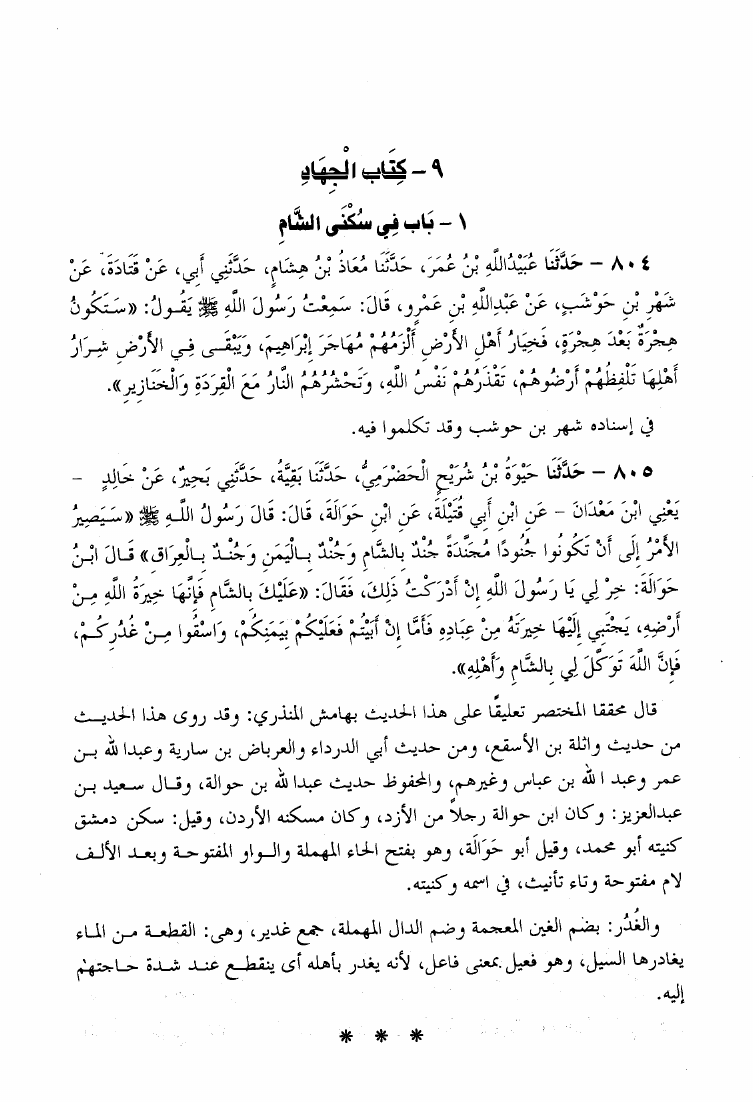 ٩ - كِتَاب الْجِهَادِ
١ - بَاب فِي سُكْنَى الشَّامِ
٨٠٤ – حَدَّثَنَا عُبَيْدُاللَّهِ بْنُ عُمَرَ، حَدَّثَنَا مُعَاذُ بْنُ هِشَامٍ، حَدَّثَنِي أَبِي، عَنْ قَتَادَةَ، عَنْ
شَهْرِ بْنِ حَوْشَبٍ، عَنْ عَبْدِاللَّهِ بْنِ عَمْرٍو، قَالَ: سَمِعْتُ رَسُولَ اللَّهِ ﷺ يَقُولُ: «سَتَكُونُ
هِجْرَةٌ بَعْدَ هِجْرَةٍ، فَخِيَارُ أَهْلِ الأَرْضِ أَلْزَمُهُمْ مُهَاجَرَ إِبْرَاهِيمَ، وَيَبْقَى فِي الأَرْضِ شِرَارُ
أَهْلِهَا تَلْفِظُهُمْ أَرْضُوهُمْ، تَقْذَرُهُمْ نَفْسُ اللَّهِ، وَتَحْشُرُهُمُ النَّارُ مَعَ الْقِرَدَةِ وَالْخَنَازِيرِ».
في إسناده شهر بن حوشب وقد تكلموا فيه.
٨٠٥ – حَدَّثَنَا حَيْوَةُ بْنُ شُرَيْحٍ الْحَضْرَمِيُّ، حَدَّثَنَا بَقِيَّةُ، حَدَّثَنِي بَحِيرٌ، عَنْ خَالِدٍ –
يَعْنِي ابْنَ مَعْدَانَ – عَنِ ابْنِ أَبِي قُتَيْلَةَ، عَنِ ابْنِ حَوَالَةَ، قَالَ: قَالَ رَسُولُ اللَّهِ ﷺ «سَيَصِيرُ
الأَمْرُ إِلَى أَنْ تَكُونُوا جُنُودًا مُجَنَّدَةً جُنْدٌ بِالشَّامِ وَجُنْدٌ بِالْيَمَنِ وَجُنْدٌ بِالْعِرَاقِ» قَالَ ابْنُ
حَوَالَةَ: خِرْ لِي يَا رَسُولَ اللَّهِ إِنْ أَدْرَكْتُ ذَلِكَ، فَقَالَ: «عَلَيْكَ بِالشَّامِ فَإِنَّهَا خِيرَةُ اللَّهِ مِنْ
أَرْضِهِ، يَجْتَبِي إِلَيْهَا خِيرَتَهُ مِنْ عِبَادِهِ فَأَمَّا إِنْ أَبَيْتُمْ فَعَلَيْكُمْ بِيَمَنِكُمْ، وَاسْقُوا مِنْ غُدُرِكُمْ،
فَإِنَّ اللَّهَ تَوَكَّلَ لِي بِالشَّامِ وَأَهْلِهِ».
قال محققا المختصر تعليقًا على هذا الحديث بهامش المنذري: وقد روى هذا الحديث
من حديث واثلة بن الأسقع، ومن حديث أبي الدرداء والعرباض بن سارية وعبدالله بن
عمر وعبد الله بن عباس وغيرهم، والمحفوظ حديث عبدالله بن حوالة، وقال سعيد بن
عبدالعزيز: وكان ابن حوالة رجلاً من الأزد، وكان مسكنه الأردن، وقيل: سكن دمشق
كنيته أبو محمد، وقيل أبو حَوَالَة، وهو بفتح الحاء المهملة والواو المفتوحة وبعد الألف
لام مفتوحة وتاء تأنيث، في اسمه وكنيته.
والغُدُر: بضم الغين المعجمة وضم الدال المهملة، جمع غدير، وهى: القطعة من الماء
يغادرها السيل، وهو فعيل بمعنى فاعل، لأنه يغدر بأهله أى ينقطع عند شدة حاجتهم
إليه.
* * *